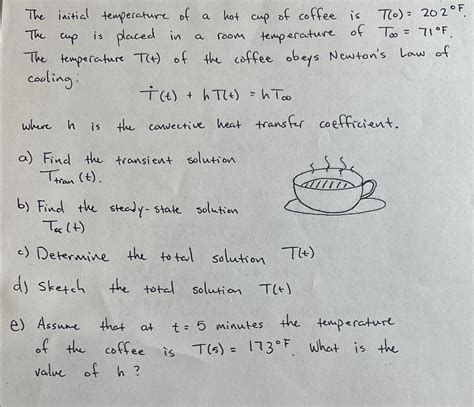 The initial temperature of a hot cup of coffee is T(0) = 202°F.
The cup is placed in a room temperature of T∞ = 71°F.
The temperature T(t) of the coffee obeys Newton's Law of
cooling:
Ṫ(t) + hT(t) = hT∞
where h is the convective heat transfer coefficient.
a) Find the transient solution
Ttran(t).
b) Find the steady-state solution
Tss(t)
c) Determine the total solution T(t)
d) Sketch the total solution T(t)
e) Assume that at t = 5 minutes the temperature
of the coffee is T(5) = 173°F. What is the
value of h?